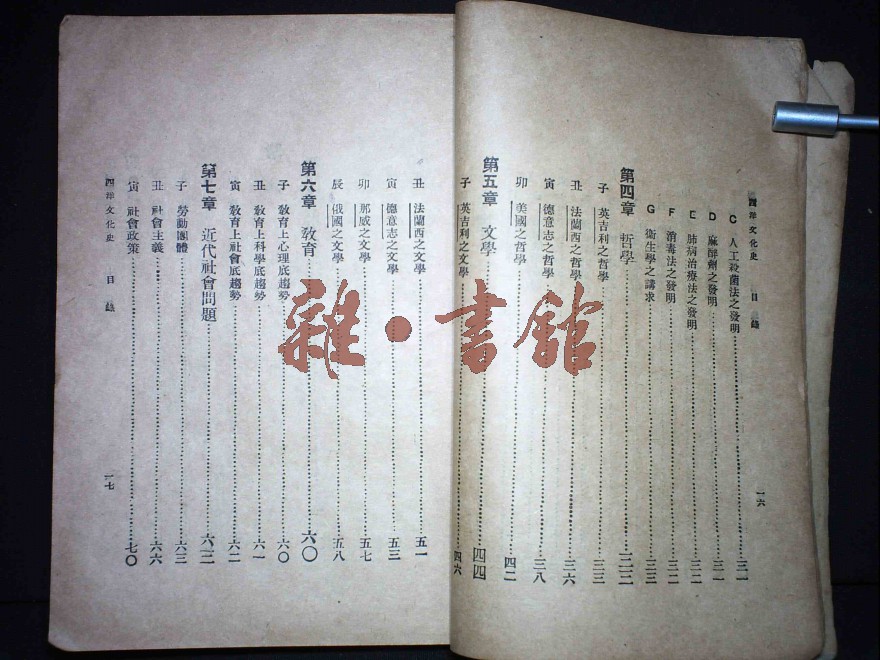 西洋文化史 目錄 一六
C 人工殺菌法之發明 三一
D 麻醉劑之發明 三一
E 肺病治療法之發明 三二
F 消毒法之發明 三二
G 衛生學之講求 三三
第四章 哲學 三三
子 英吉利之哲學 三三
丑 法蘭西之哲學 三六
寅 德意志之哲學 三八
卯 美國之哲學 四二
第五章 文學 四四
子 英吉利之文學 四六
丑 法蘭西之文學 五一
寅 德意志之文學 五三
卯 那威之文學 五七
辰 俄國之文學 五八
第六章 教育 六〇
子 教育上心理底趨勢 六〇
丑 教育上科學底趨勢 六一
寅 教育上社會底趨勢 六二
第七章 近代社會問題 六二
子 勞動團體 六三
丑 社會主義 六六
寅 社會政策 七〇
西洋文化史 目錄 一七
雜·書館